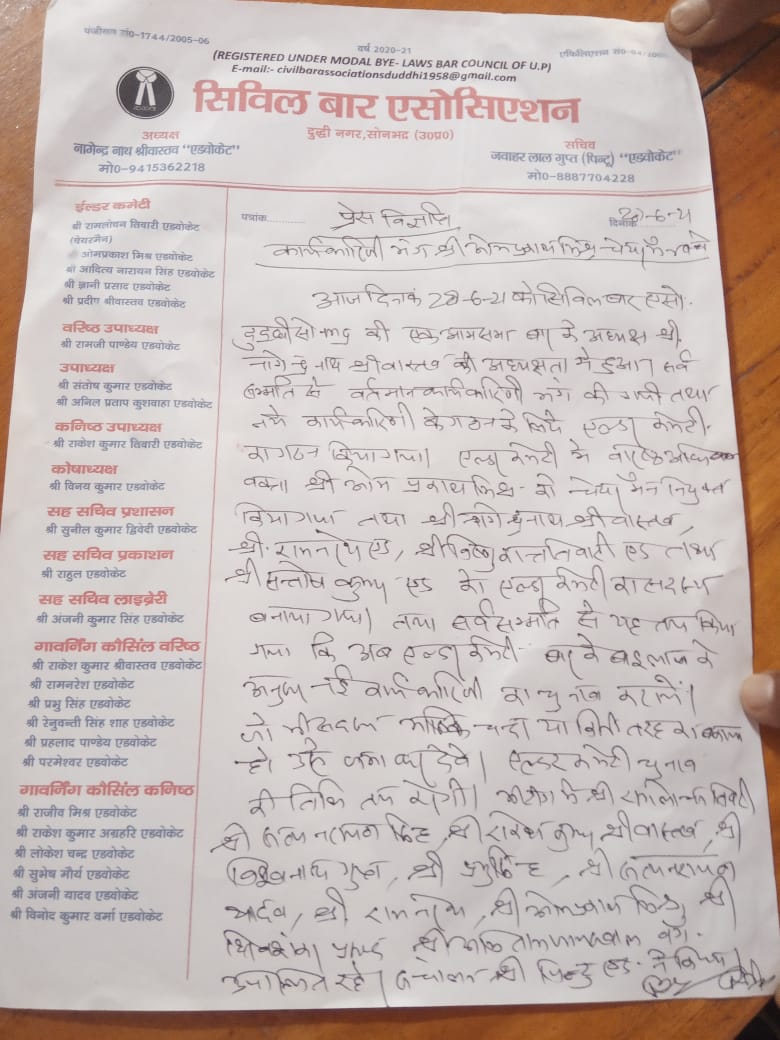 पंजीयन सं0-1744/2005-06
वर्ष 2020-21
एफिलिएशन सं0-04/200
(REGISTERED UNDER MODAL BYE- LAWS BAR COUNCIL OF U.P)
E-mail:- civilbarassociationsduddhi1958@gmail.com
सिविल बार एसोसिएशन
दुद्धी नगर,सोनभद्र (उ0प्र0)
अध्यक्ष
नागेन्द्र नाथ श्रीवास्तव "एडवोकेट"
मो0-9415362218
सचिव
जवाहर लाल गुप्त (पिन्टू) "एडवोकेट"
मो0-8887704228
ईल्डर कमेटी
श्री रामलोचन तिवारी एडवोकेट
(चेयरमैन)
ओमप्रकाश मिश्र एडवोकेट
श्री आदित्य नारायन सिंह एडवोकेट
श्री ज्ञानी प्रसाद एडवोकेट
श्री प्रदीप श्रीवास्तव एडवोकेट
वरिष्ठ उपाध्यक्ष
श्री रामजी पाण्डेय एडवोकेट
उपाध्यक्ष
श्री संतोष कुमार एडवोकेट
श्री अनिल प्रताप कुशवाहा एडवोकेट
कनिष्ठ उपाध्यक्ष
श्री राकेश कुमार तिवारी एडवोकेट
कोषाध्यक्ष
श्री विजय कुमार एडवोकेट
सह सचिव प्रशासन
श्री सुनील कुमार द्विवेदी एडवोकेट
सह सचिव प्रकाशन
श्री राहुल एडवोकेट
सह सचिव लाइब्रेरी
श्री अंजनी कुमार सिंह एडवोकेट
गावर्निंग कौसिंल वरिष्ठ
श्री राकेश कुमार श्रीवास्तव एडवोकेट
श्री रामनरेश एडवोकेट
श्री प्रभु सिंह एडवोकेट
श्री रेनुवन्ती सिंह शाह एडवोकेट
श्री प्रहलाद पाण्डेय एडवोकेट
श्री परमेश्वर एडवोकेट
गावर्निंग कौसिंल कनिष्ठ
श्री राजीव मिश्र एडवोकेट
श्री राकेश कुमार अग्रहरि एडवोकेट
श्री लोकेश चन्द्र एडवोकेट
श्री सुभेष मौर्य एडवोकेट
श्री अंजनी यादव एडवोकेट
श्री विनोद कुमार वर्मा एडवोकेट
पत्रांक
प्रेस विज्ञप्ति
दिनांक 28-6-21
कार्यकारिणी भंग श्री ओमप्रकाश मिश्र चेयरमैन बने
आज दिनांक 28-6-21 को सिविल बार एसो.
दुद्धी सोनभद्र की एक आमसभा बार के अध्यक्ष श्री
नागेन्द्र नाथ श्रीवास्तव की अध्यक्षता में हुआ। सर्व
सम्मति से वर्तमान कार्यकारिणी भंग की गयी तथा
नये कार्यकारिणी के गठन के लिये एल्डर कमेटी
का गठन किया गया। एल्डर कमेटी के वरिष्ठ अधि
वक्ता श्री ओम प्रकाश मिश्र को चेयरमैन नियुक्त
किया गया तथा श्री नागेन्द्रनाथ श्रीवास्तव,
श्री रामनरेश एड, श्री विष्णु कान्त तिवारी एड तथा
श्री सन्तोष कुमार एड को एल्डर कमेटी का सदस्य
बनाया गया। तथा सर्वसम्मति से यह तय किया
गया कि अब एल्डर कमेटी बार के बाइलाज के
अनुरूप नई कार्यकारिणी का चुनाव करा लें।
जो भी सदस्य मासिक चन्दा या किसी तरह का बकाया
हो उसे जमा कर देवे। एल्डर कमेटी चुनाव
की तिथि तय करेगी। मीटिंग में श्री रामलोचन तिवारी
श्री सत्यनरायन सिंह, श्री राकेश कुमार श्रीवास्तव, श्री
विश्वनाथ गुप्ता, श्री प्रभु सिंह, श्री सत्यनरायन
यादव, श्री रामनरेश, श्री ओमप्रकाश सिंह, श्री
शिवशंकर प्रसाद श्री वगै.
उपस्थित रहे। संचालन श्री पिन्टू एड. ने किया।